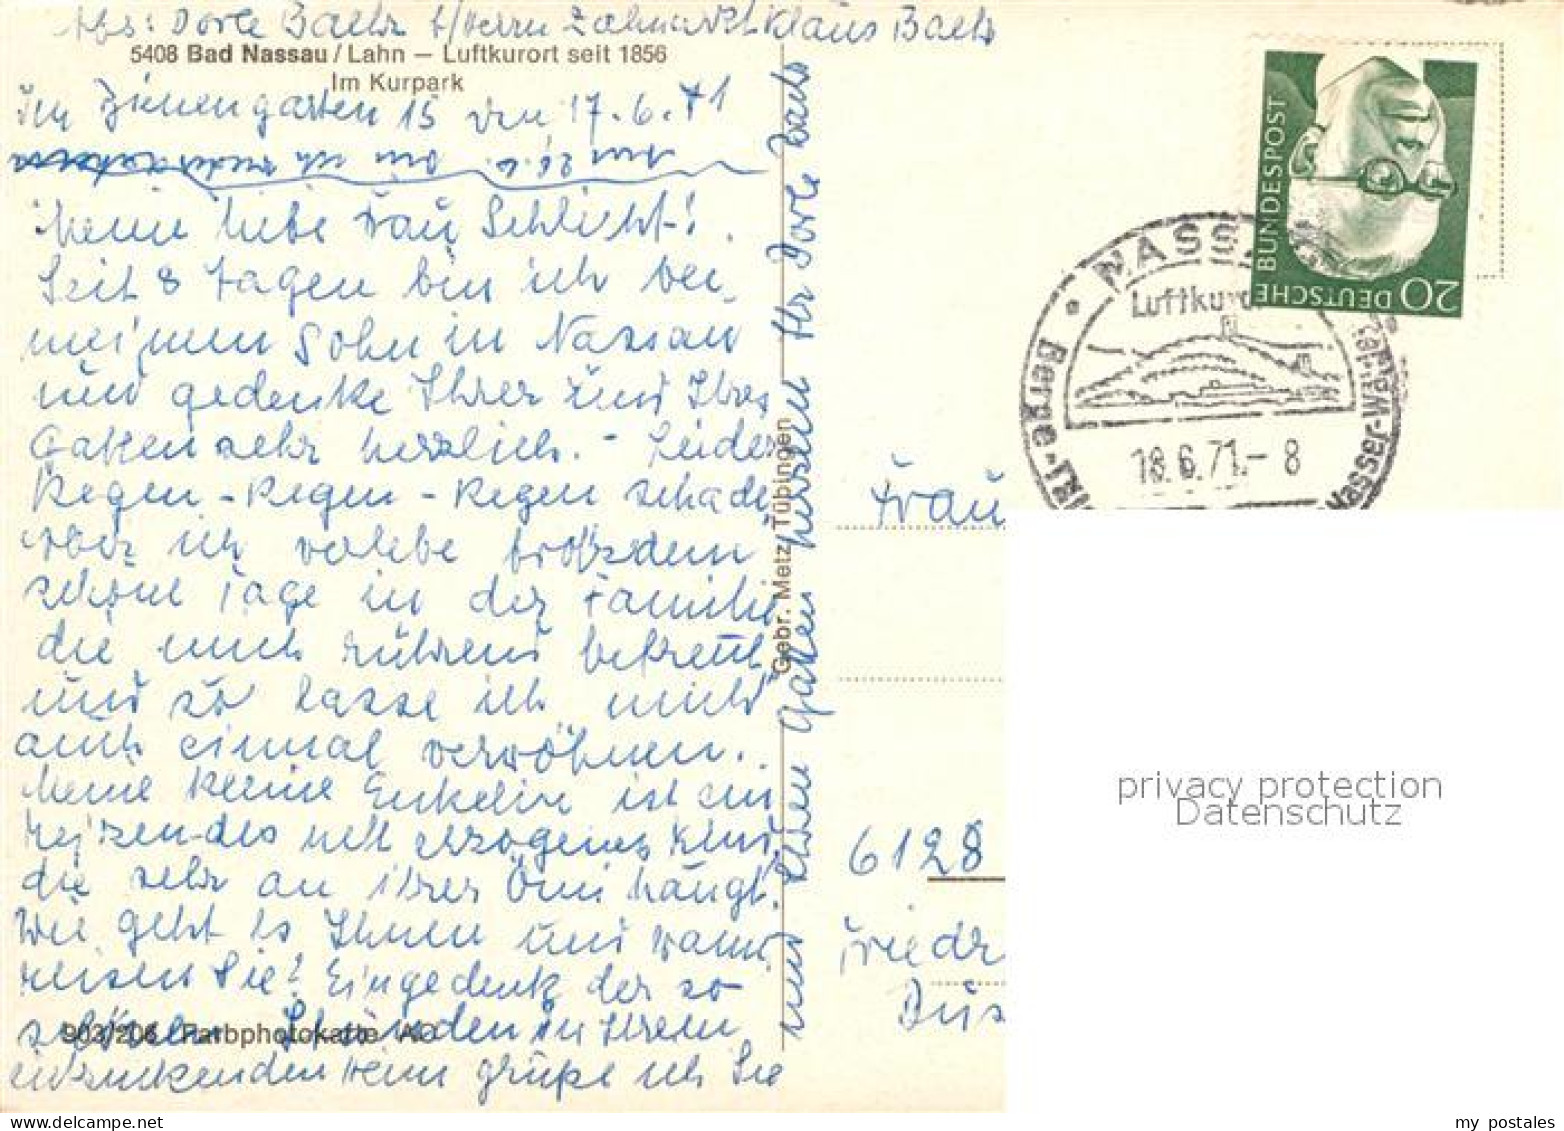 Abs: Dorle Baehr b/Herrn Zahnarzt Klaus Baehr
5408 Bad Nassau / Lahn – Luftkurort seit 1856
Im Kurpark
Im Zienengarten 15 den 17.6.71
am 26.6. bin ich wieder
Meine liebe Frau Schlicht!
Seit 8 Tagen bin ich bei
meinem Sohn in Nassau
und gedenke Ihrer und Ihres
Gatten sehr herzlich. – Leider
Regen – Regen – Regen schade
aber ich verlebe trotzdem
schöne Tage in der Familie
die mich rührend betreut
und so lasse ich mich
auch einmal verwöhnen..
Meine kleine Enkelin ist ein
reizendes nett erzogenes Kind
die sehr an ihrer Omi hängt.
Wie geht es Ihnen und wann
reisen Sie? Eingedenk der so
schönen Stunden in Ihrem
entzückenden Heim grüße ich Sie
und Ihren Gatten herzl. Ihr Dorle Baehr
903/206 Farbphotokarte AO
Gebr. Metz, Tübingen
DEUTSCHE BUNDESPOST
20
NASS
Luftkuro
Berge
Wasser-Wälder
18.6.71.– 8
Frau
6128
Friedr
Bis
privacy protection
Datenschutz
my postales
delcampe.net